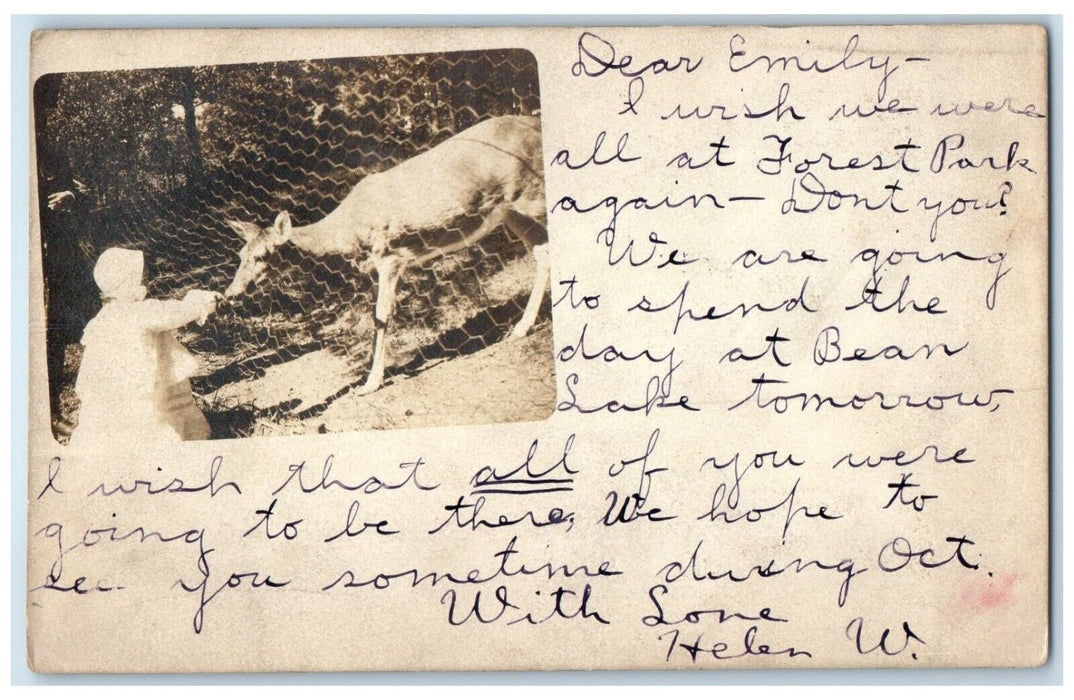 Dear Emily-
I wish we were
all at Forest Park
again- Dont you?
We are going
to spend the
day at Bean
Lake tomorrow,
I wish that all of you were
going to be there, We hope to
see you sometime during Oct.
With Love
Helen W.